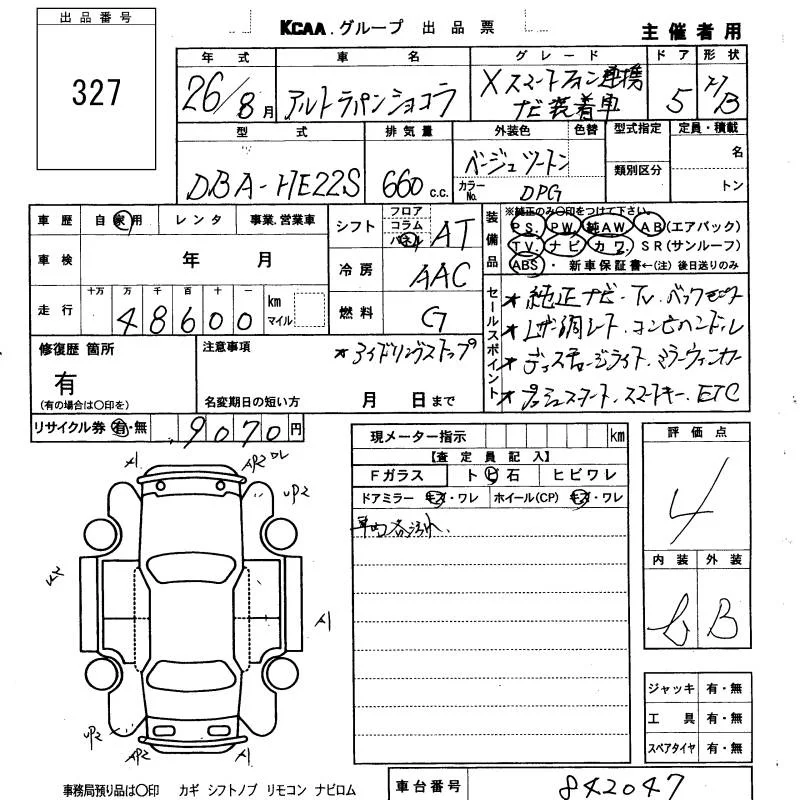 出品番号
327
KCAA.グループ 出品票
主催者用
年式 車名 グレード ドア 形状
26/8月 アルトラパンショコラ Xスマートフォン連携
ナビ装着車 5 H/B
型式 排気量 外装色 色替 型式指定 定員・積載
DBA-HE22S 660 c.c. ベージュツートン
カラーNo. DPG 類別区分 名
トン
車歴 自家用 レンタ 事業.営業車
車検 年 月
走行 十万 万 千 百 十 一 km
マイル
48600
シフト フロア
コラム
パネル AT
冷房 AAC
燃料 G
装備品 ※純正のみ〇印をつけて下さい。
PS. PW. 純AW. AB(エアバック)
TV. ナビ カワ. SR(サンルーフ)
ABS・新車保証書←(注)後日送りのみ
セールスポイント
★純正ナビ・TV.バックモニター
★レザー調シート.コンビハンドル
★ディスチャージライト.ミラーウィンカー
★プッシュスタート.スマートキー.ETC
修復歴 箇所
有
(有の場合は〇印を)
注意事項
★アイドリングストップ
名変期日の短い方 月 日まで
リサイクル券 有・無 9070円
現メーター指示 km
【査定員記入】
Fガラス トビ石 ヒビワレ
ドアミラー キズ・ワレ ホイール(CP) キズ・ワレ
車内各汚れ.
評価点
4
内装 外装
b B
A1 AP2 DL
UP2
A1
UP2 AP2 A1
ジャッキ 有・無
工具 有・無
スペアタイヤ 有・無
事務局預り品は〇印 カギ シフトノブ リモコン ナビロム
車台番号 842047